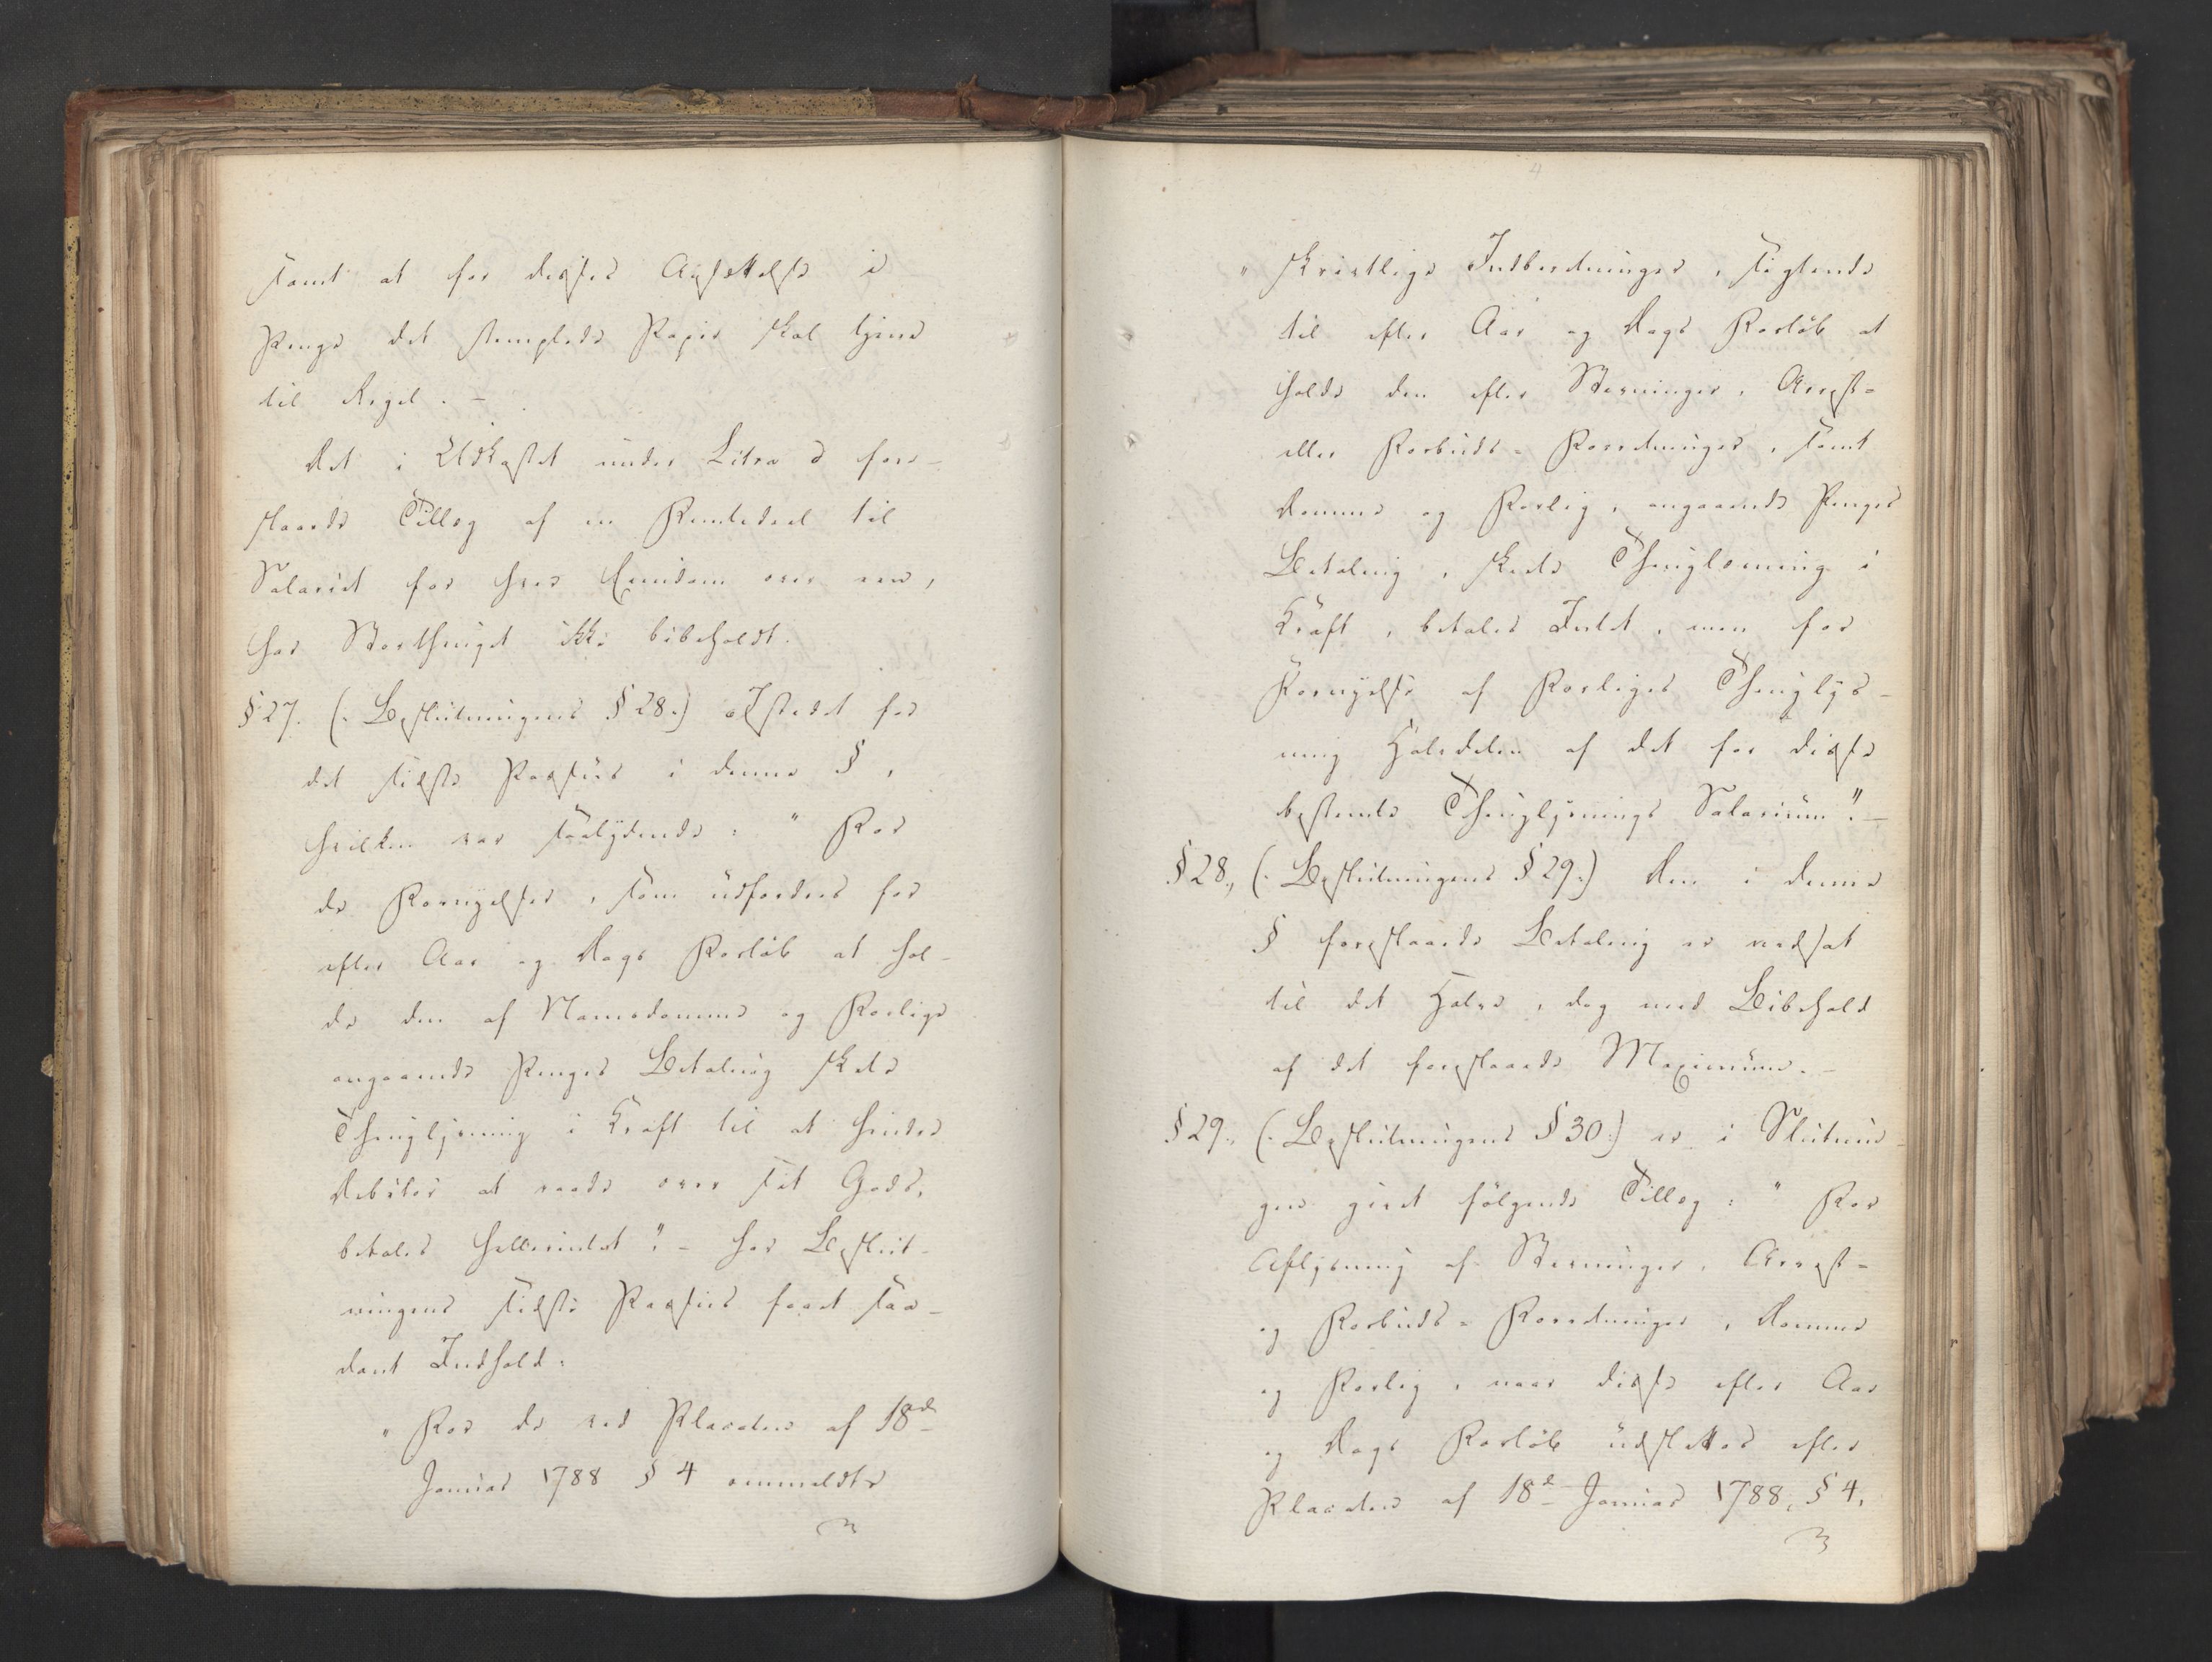 samt at for deres Ansættelse i
Penge det stemplede Papir skal tjene
til Regel. –
Det i Udkastet under Litra d fore-
slaaede Tillæg af en Deel til
Salariet for hver Eiendom over een,
har Storthinget ikke bibeholdt.
§ 27. (: Beslutningens § 28.) Istedet for
det sidste Passus i denne §,
hvilken var saalydende: " For
de Fornyelser, som udfordres for
efter Aar og Dags Forløb at hol-
de den af Navnedomme og Forlige
angaaende Penges Betaling skete
Thinglysning i Kraft til at hindre
Debitor at raade over sit Gods,
betales heller intet ". – har Beslut-
ningens sidste Passus faaet saa-
dant Indhold:
" For de ved Placaten af 18de
Januar 1788 § 4 ommeldte
" skriftlige Indberetninger, sigtende
til efter Aar og Dags Forløb at
holde den efter Stevninger, Arrest-
eller Forbuds- Forretninger, samt
Domme og Forlig, angaaende Penges
Betaling, skete Thinglæsning i
Kraft, betales Intet, men for
Fornyelse af Forliges Thinglys-
ning Halvdelen af det for disse
bestemte Thinglysnings Salarium". –
§ 28., (: Beslutningens § 29.) Den i denne
§ foreslaaede Betaling er nedsat
til det Halve, dog med Bibehold
af det foreslaaede Maximum. –
§ 29., (: Beslutningens § 30.) er i Slutnin-
gen givet følgende Tillæg: " For
Aflysning af Stevninger, Arrest-
og Forbuds- Forretninger, Domme
og Forlig, naar disse efter Aar
og Dags Forløb udslettes efter
Placaten af 18de Januar 1788, § 4,